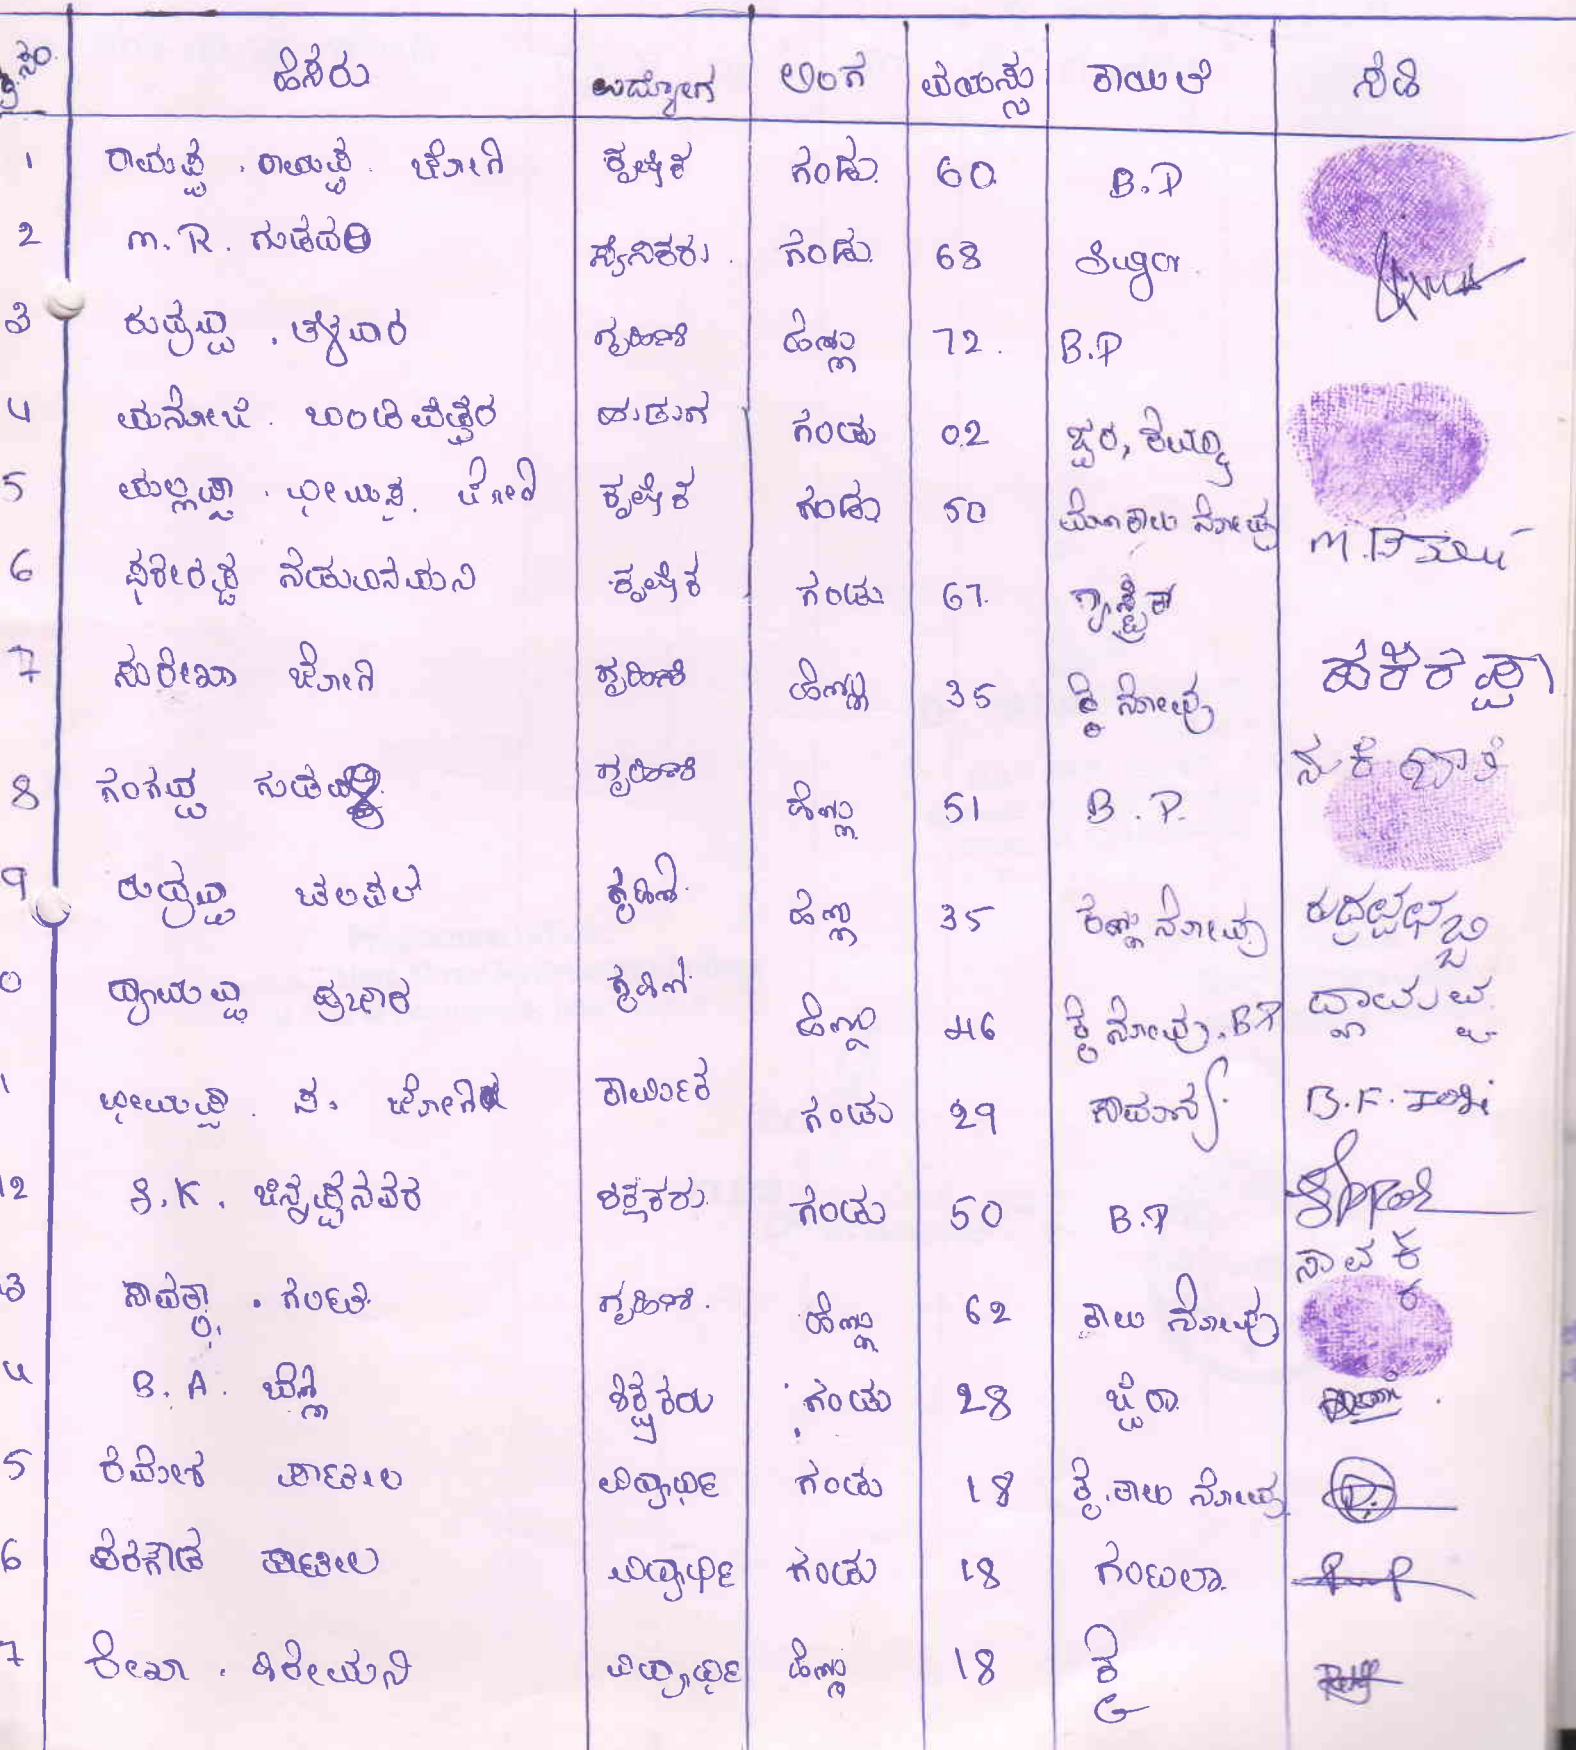 ಕ್ರ.ಸಂ. ಹೆಸರು ಉದ್ಯೋಗ ಲಿಂಗ ವಯಸ್ಸು ಕಾಯಿಲೆ ಸಹಿ
1 ರಾಮಪ್ಪ . ರಾಮಪ್ಪ . ಜೋಗಿ ಕೃಷಿಕ ಗಂಡು 60 B.P
2 M. R. ಗುಡದರಿ ಸೈನಿಕರು . ಗಂಡು 68 Sugar
3 ರುದ್ರವ್ವಾ . ತಳವಾರ ಗೃಹಿಣಿ ಹೆಣ್ಣು 72 . B.P
4 ಮನೋಜ . ಬಂಡಿವಡ್ಡರ ಹುಡುಗ ಗಂಡು 02 ಜ್ವರ, ಕೆಮ್ಮು
5 ಮಲ್ಲಪ್ಪಾ . ಭೀಮಪ್ಪ ಜೋಗಿ ಕೃಷಿಕ ಗಂಡು 50 ಮೊಣಕಾಲು ನೋವು M.B
6 ಫಕೀರಪ್ಪ ನಡುವಿನಮನಿ ಕೃಷಿಕ ಗಂಡು 67 ಗ್ಯಾಸ್ಟ್ರಿಕ
7 ಸುರೇಖಾ ಜೋಗಿ ಗೃಹಿಣಿ ಹೆಣ್ಣು 35 ಕೈ ನೋವು
8 ಗಂಗವ್ವ ಗೃಹಿಣಿ ಹೆಣ್ಣು 51 B . P.
9 ರುದ್ರವ್ವಾ ಗೃಹಿಣಿ ಹೆಣ್ಣು 35 ಕಣ್ಣು ನೋವು
0 ದ್ಯಾಮವ್ವ ಪೂಜಾರ ಗೃಹಿಣಿ ಹೆಣ್ಣು 46 ಕೈ ನೋವು, B.P ದ್ಯಾಮವ್ವ
1 ಭೀಮಪ್ಪಾ . ಫ. ಜೋಗಿ ಕಾರ್ಮಿಕ ಗಂಡು 29 ಸಾಮಾನ್ಯ B.F. Jogi
12 S.K. ಚಿನ್ನಪ್ಪನವರ ಶಿಕ್ಷಕರು ಗಂಡು 50 B.P
3 ಸಾವಿತ್ರಿ . ಗೃಹಿಣಿ . ಹೆಣ್ಣು 62 ಕಾಲು ನೋವು
4 B. A. ಶಿಕ್ಷಕರು ಗಂಡು 28
5 ರಮೇಶ ಪಾಟೀಲ ವಿದ್ಯಾರ್ಥಿ ಗಂಡು 18 ಕೈ.ಕಾಲು ನೋವು
6 ವೀರಗೌಡ ಪಾಟೀಲ ವಿದ್ಯಾರ್ಥಿ ಗಂಡು 18 ಗಂಟಲಾ
7 ರೇಖಾ . ಹಿರೇಮನಿ ವಿದ್ಯಾರ್ಥಿ ಹೆಣ್ಣು 18 ಕೈ